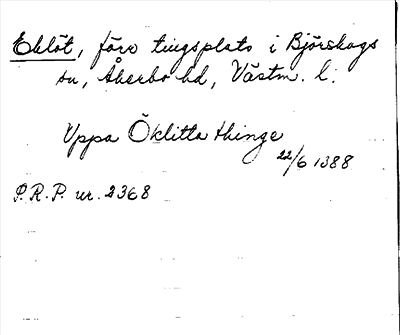 Eklöt, förr tingsplats i Björskogs
sn, Åkerbo hd, Västm. l:
Uppa Öklitta thinge
22/6 1388
P.R.P. nr. 2368